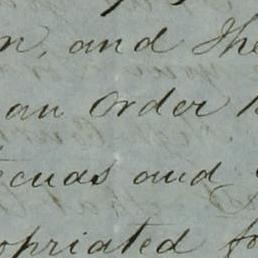 n, and the
an order
and
opriated fo